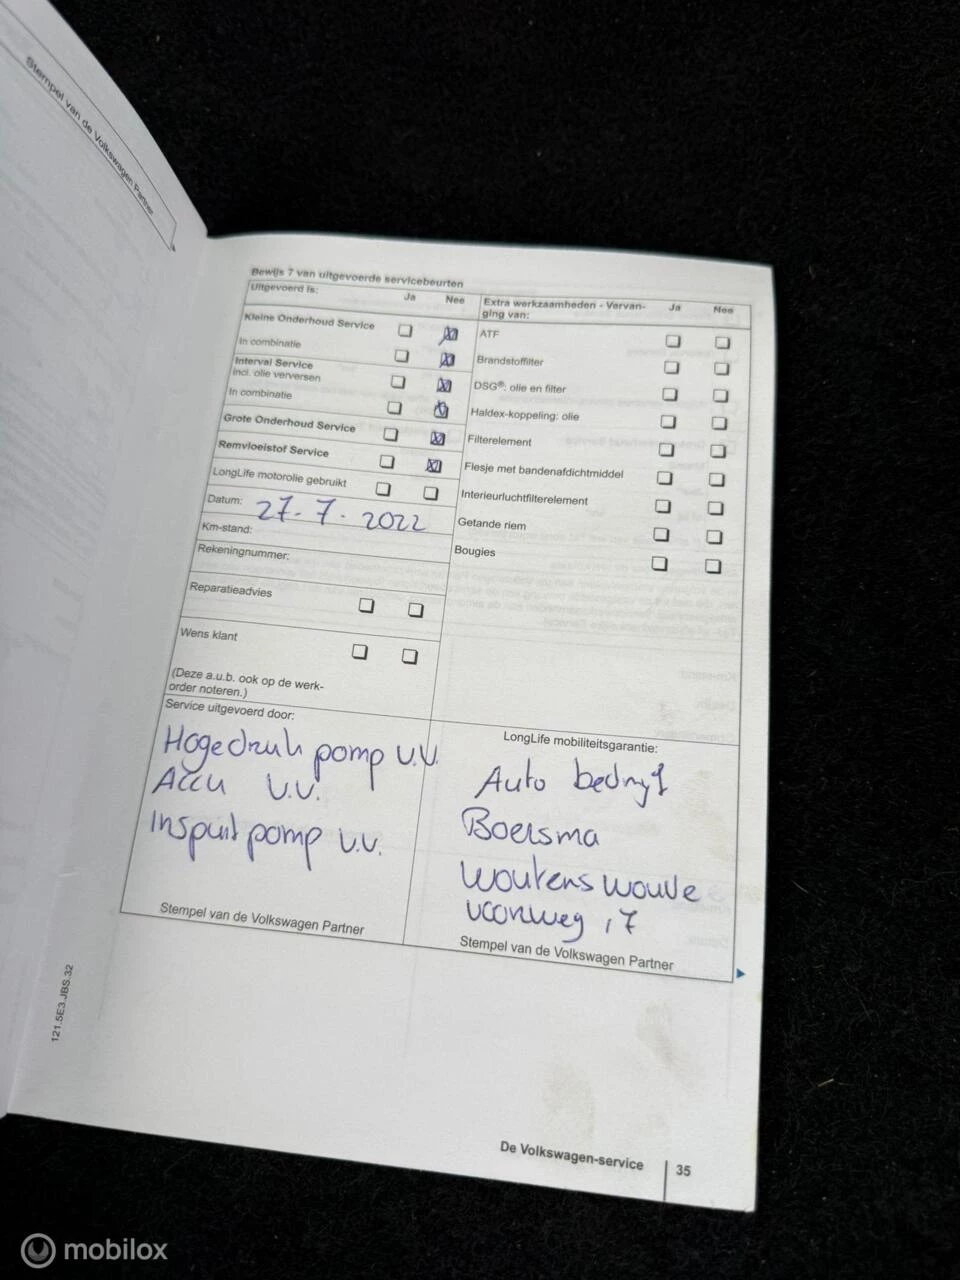 Stempel van de Volkswagen Partner
Bewijs 7 van uitgevoerde servicebeurten
Uitgevoerd is: Ja Nee
Kleine Onderhoud Service
In combinatie
Interval Service
incl. olie verversen
In combinatie
Grote Onderhoud Service
Remvloeistof Service
LongLife motorolie gebruikt
Datum: 27-7-2022
Km-stand:
Rekeningnummer:
Reparatieadvies
Wens klant
(Deze a.u.b. ook op de werk-
order noteren.)
Extra werkzaamheden - Vervan- Ja Nee
ging van:
ATF
Brandstoffilter
DSG®: olie en filter
Haldex-koppeling: olie
Filterelement
Flesje met bandenafdichtmiddel
Interieurluchtfilterelement
Getande riem
Bougies
Service uitgevoerd door:
Hogedruk pomp v.v.
Accu v.v.
Inspuit pomp v.v.
Stempel van de Volkswagen Partner
LongLife mobiliteitsgarantie:
Auto bedrijf
Boersma
Wouterswoude
voorweg 17
Stempel van de Volkswagen Partner
121.5E3.JBS.32
De Volkswagen-service 35
mobilox